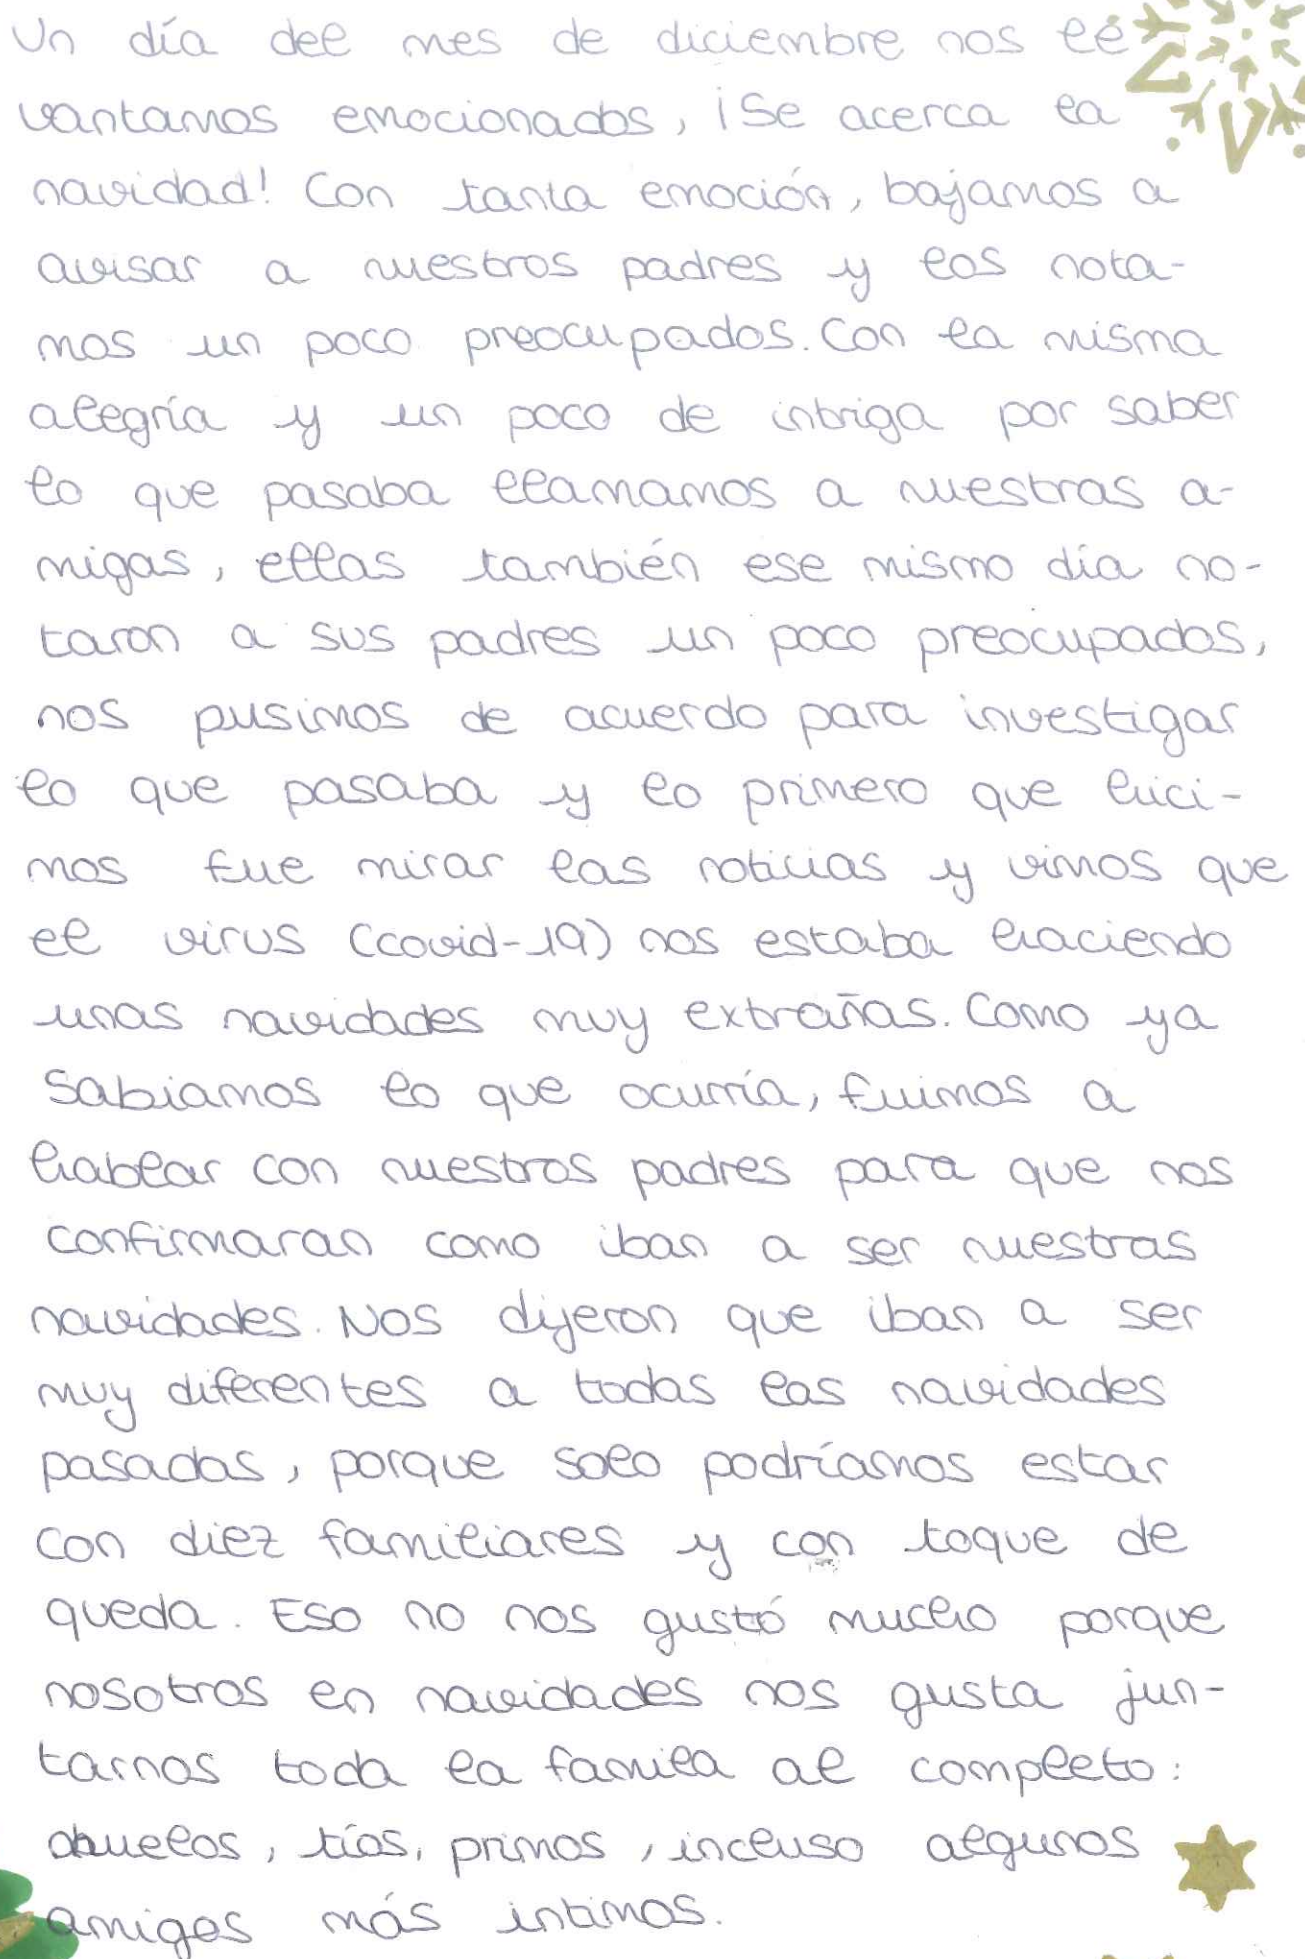 Un día del mes de diciembre nos lé
vantamos emocionados, ¡Se acerca la
navidad! Con tanta emoción, bajamos a
avisar a nuestros padres y los nota-
mos un poco preocupados. Con la misma
alegría y un poco de intriga por saber
lo que pasaba llamamos a nuestras a-
migas, ellas también ese mismo día no-
taron a sus padres un poco preocupados,
nos pusimos de acuerdo para investigar
lo que pasaba y lo primero que hici-
mos fue mirar las noticias y vimos que
el virus (covid-19) nos estaba haciendo
unas navidades muy extrañas. Como ya
sabiamos lo que ocurría, fuimos a
hablar con nuestros padres para que nos
confirmaran como iban a ser nuestras
navidades. Nos dijeron que iban a ser
muy diferentes a todas las navidades
pasadas, porque solo podríamos estar
con diez familiares y con toque de
queda. Eso no nos gustó mucho porque
nosotros en navidades nos gusta jun-
tarnos toda la familа al completo:
abuelos, tíos, primos, incluso algunos
amigos más intimos.